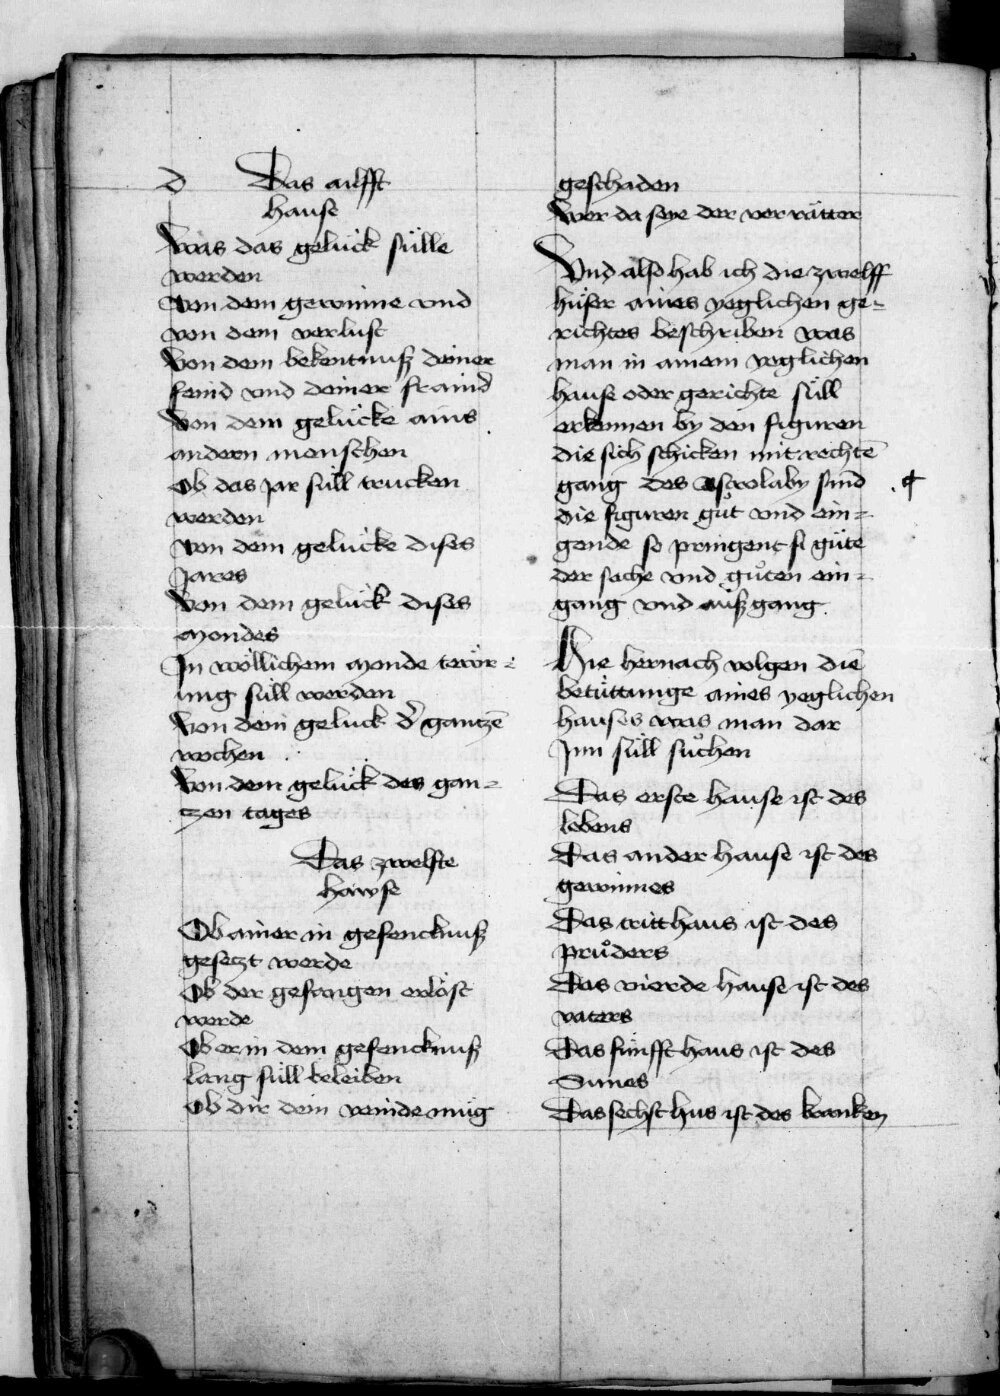 d Das ailfft
hause
Was das gelück sülle
werden
Von dem gewinne vnd
von dem verlust
Von dem bekentnuß deiner
feind vnd deiner fraind
Von dem gelücke ains
andern menschen
Ob das Jar süll trucken
werden
Von dem gelücke dises
Jares
Von dem gelück dises
mondes
In wöllichem monde tewr-
ung süll werden
Von dem gelück d͛ gantzē
wochen
Von dem gelück des gan-
czen tages
Das zwelfte
hawse
Ob ainer in gefencknuß
gesetzt werde
Ob der gefangen erlöst
werde
Ob er in dem gefencknuß
lang süll beleiben
Ob dir dein veinde müg
geschaden
Wer da seye der verrätter
Vnd also hab ich die zwelff
hüser aines yeglichen ge-
richtes beschriben was
man in ainem yeglichen
hause oder gerichte süll
erkennen by den figuren
die sich schicken mit rechtē
gang des Astrolaby sind
die figuren gůt vnd ein-
gende so pringent si güte
der sache vnd gůten ein-
gang vnd außgang.
Hie hernach volgen die
betüttunge aines yeglichen
hauses was man dar
Jnn süll sůchen
Das erste hause ist des
lebens
Das ander hause ist des
gewinnes
Das tritt haus ist des
průders
Das vierde hause ist des
vaters
Das fünfft haus ist des
Sunes
Das sechst hus ist des krancken